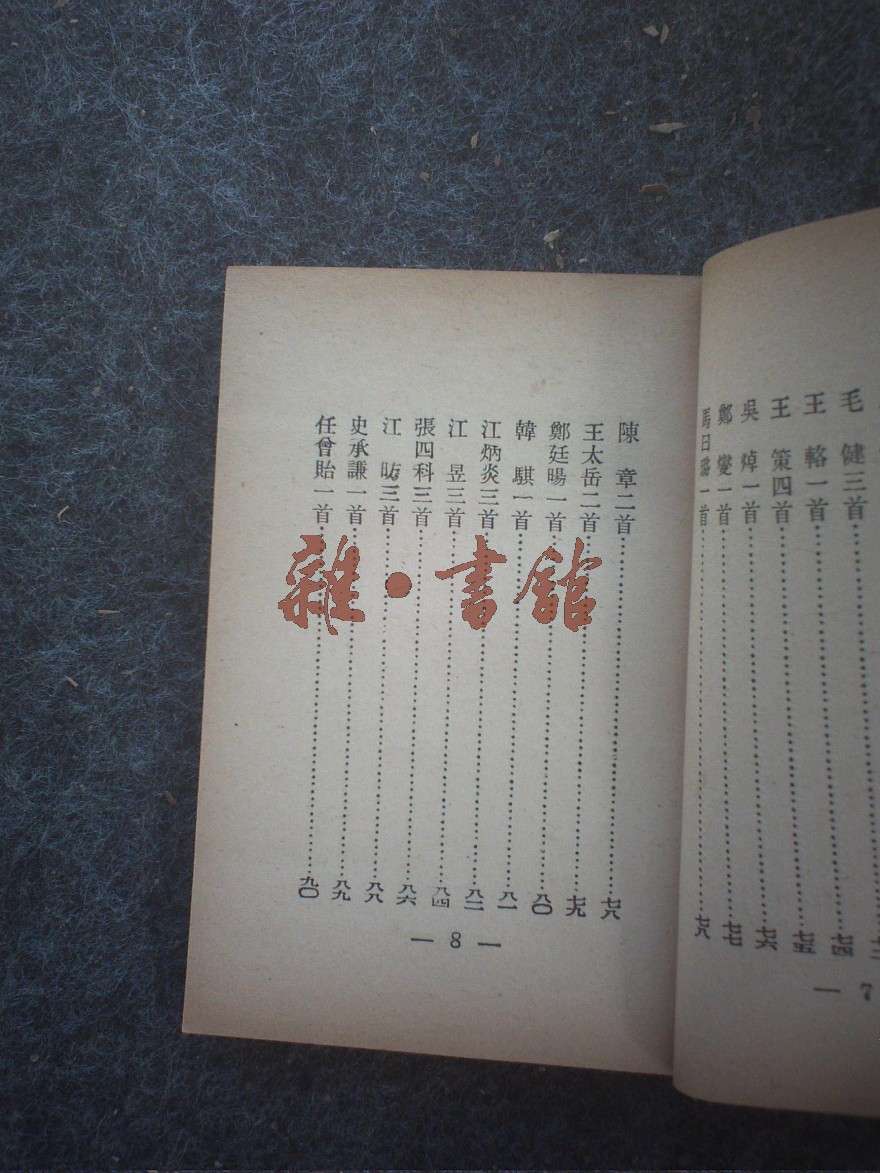 毛　健三首……七四
王　輅一首……七四
王　策四首……七五
吳　焯一首……七六
鄭　燮一首……七七
馬曰璐一首……七八
— 7
陳　章二首……七八
王太岳二首……七九
鄭廷暘一首……八〇
韓　騏一首……八一
江炳炎三首……八二
江　昱三首……八四
張四科三首……八六
江　昉三首……八八
史承謙一首……八九
任曾貽一首……九〇
— 8 —
雜·書館